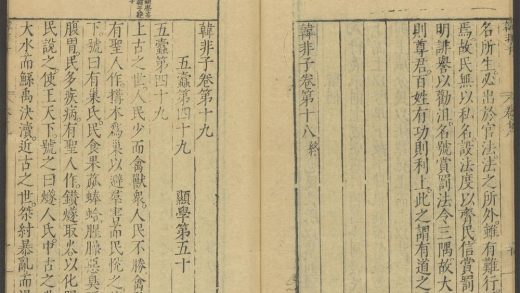 名所生必出於官法法之所外雖有難行
焉故民無以私名設法度以齊民信賞罰
明誹譽以勸沮名號賞罰法令三隅故大
則尊君百姓有功則利上此之謂有道之
韓非子卷第十八 終
韓非子卷第十九
五蠹第四十九 顯學第五十
五蠹第四十九
上古之世人民少而禽獸衆人民不勝禽
有聖人作搆木爲巢以避羣害而民悅之
下號曰有巢氏民食果蓏蜯蛤腥臊惡臭
腹胃民多疾病有聖人作鑽燧取火以化
民說之使王天下號之曰燧人氏中古之
大水而鯀禹決瀆近古之世桀紂暴亂而湯